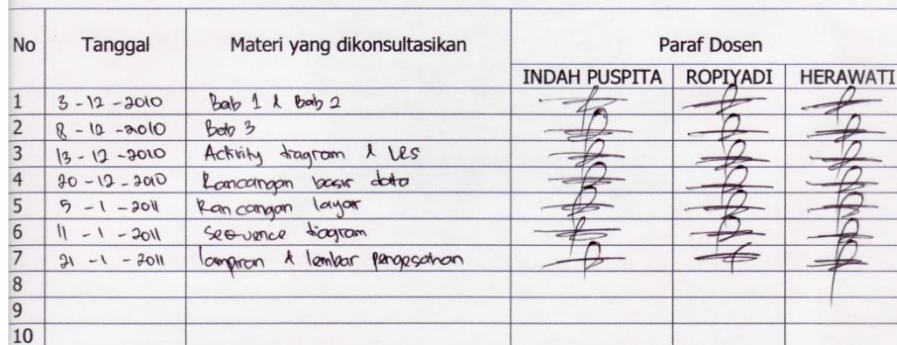 No Tanggal Materi yang dikonsultasikan Paraf Dosen
INDAH PUSPITA ROPIYADI HERAWATI
1 3 - 12 - 2010 Bab 1 & Bab 2
2 8 - 12 - 2010 Bab 3
3 13 - 12 - 2010 Activity diagram & LRS
4 20 - 12 - 2010 Rancangan basis data
5 5 - 1 - 2011 Rancangan layar
6 11 - 1 - 2011 sequence diagram
7 21 - 1 - 2011 lampiran & lembar pengesahan
8
9
10